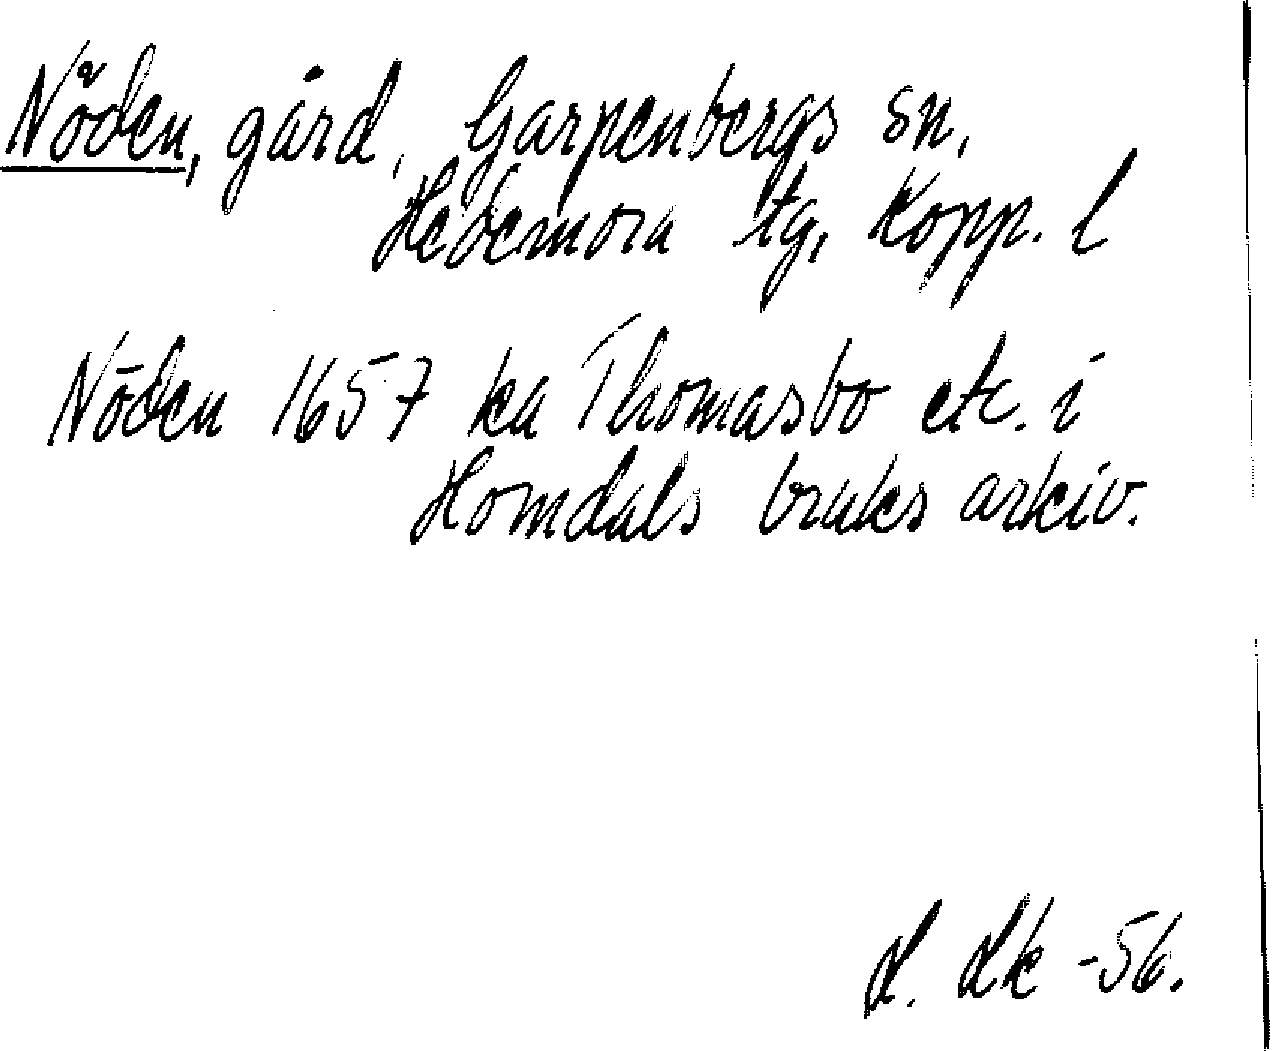 Nöden, gård, Garpenbergs sn,
Hedemora tg, Kopp. l
Nöden 1657 ka Thomasbo etc. i
Homdals bruks arkiv.
L. Lk -56.